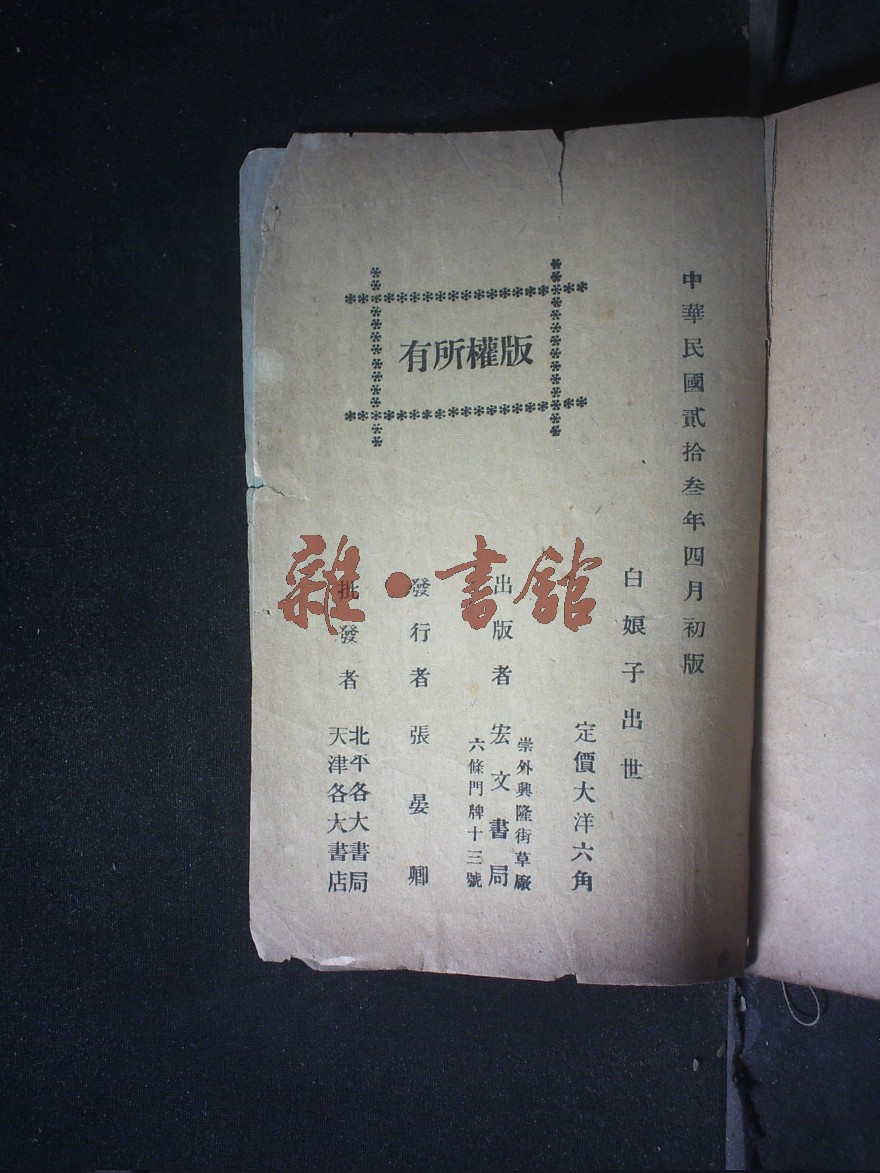 中華民國貳拾叁年四月初版
白娘子出世
定價大洋六角
出版者 宏文書局
崇外興隆街草廠
六條門牌十三號
發行者 張晏卿
批發者
北平各大書局
天津各大書店
版權所有
雜·書館